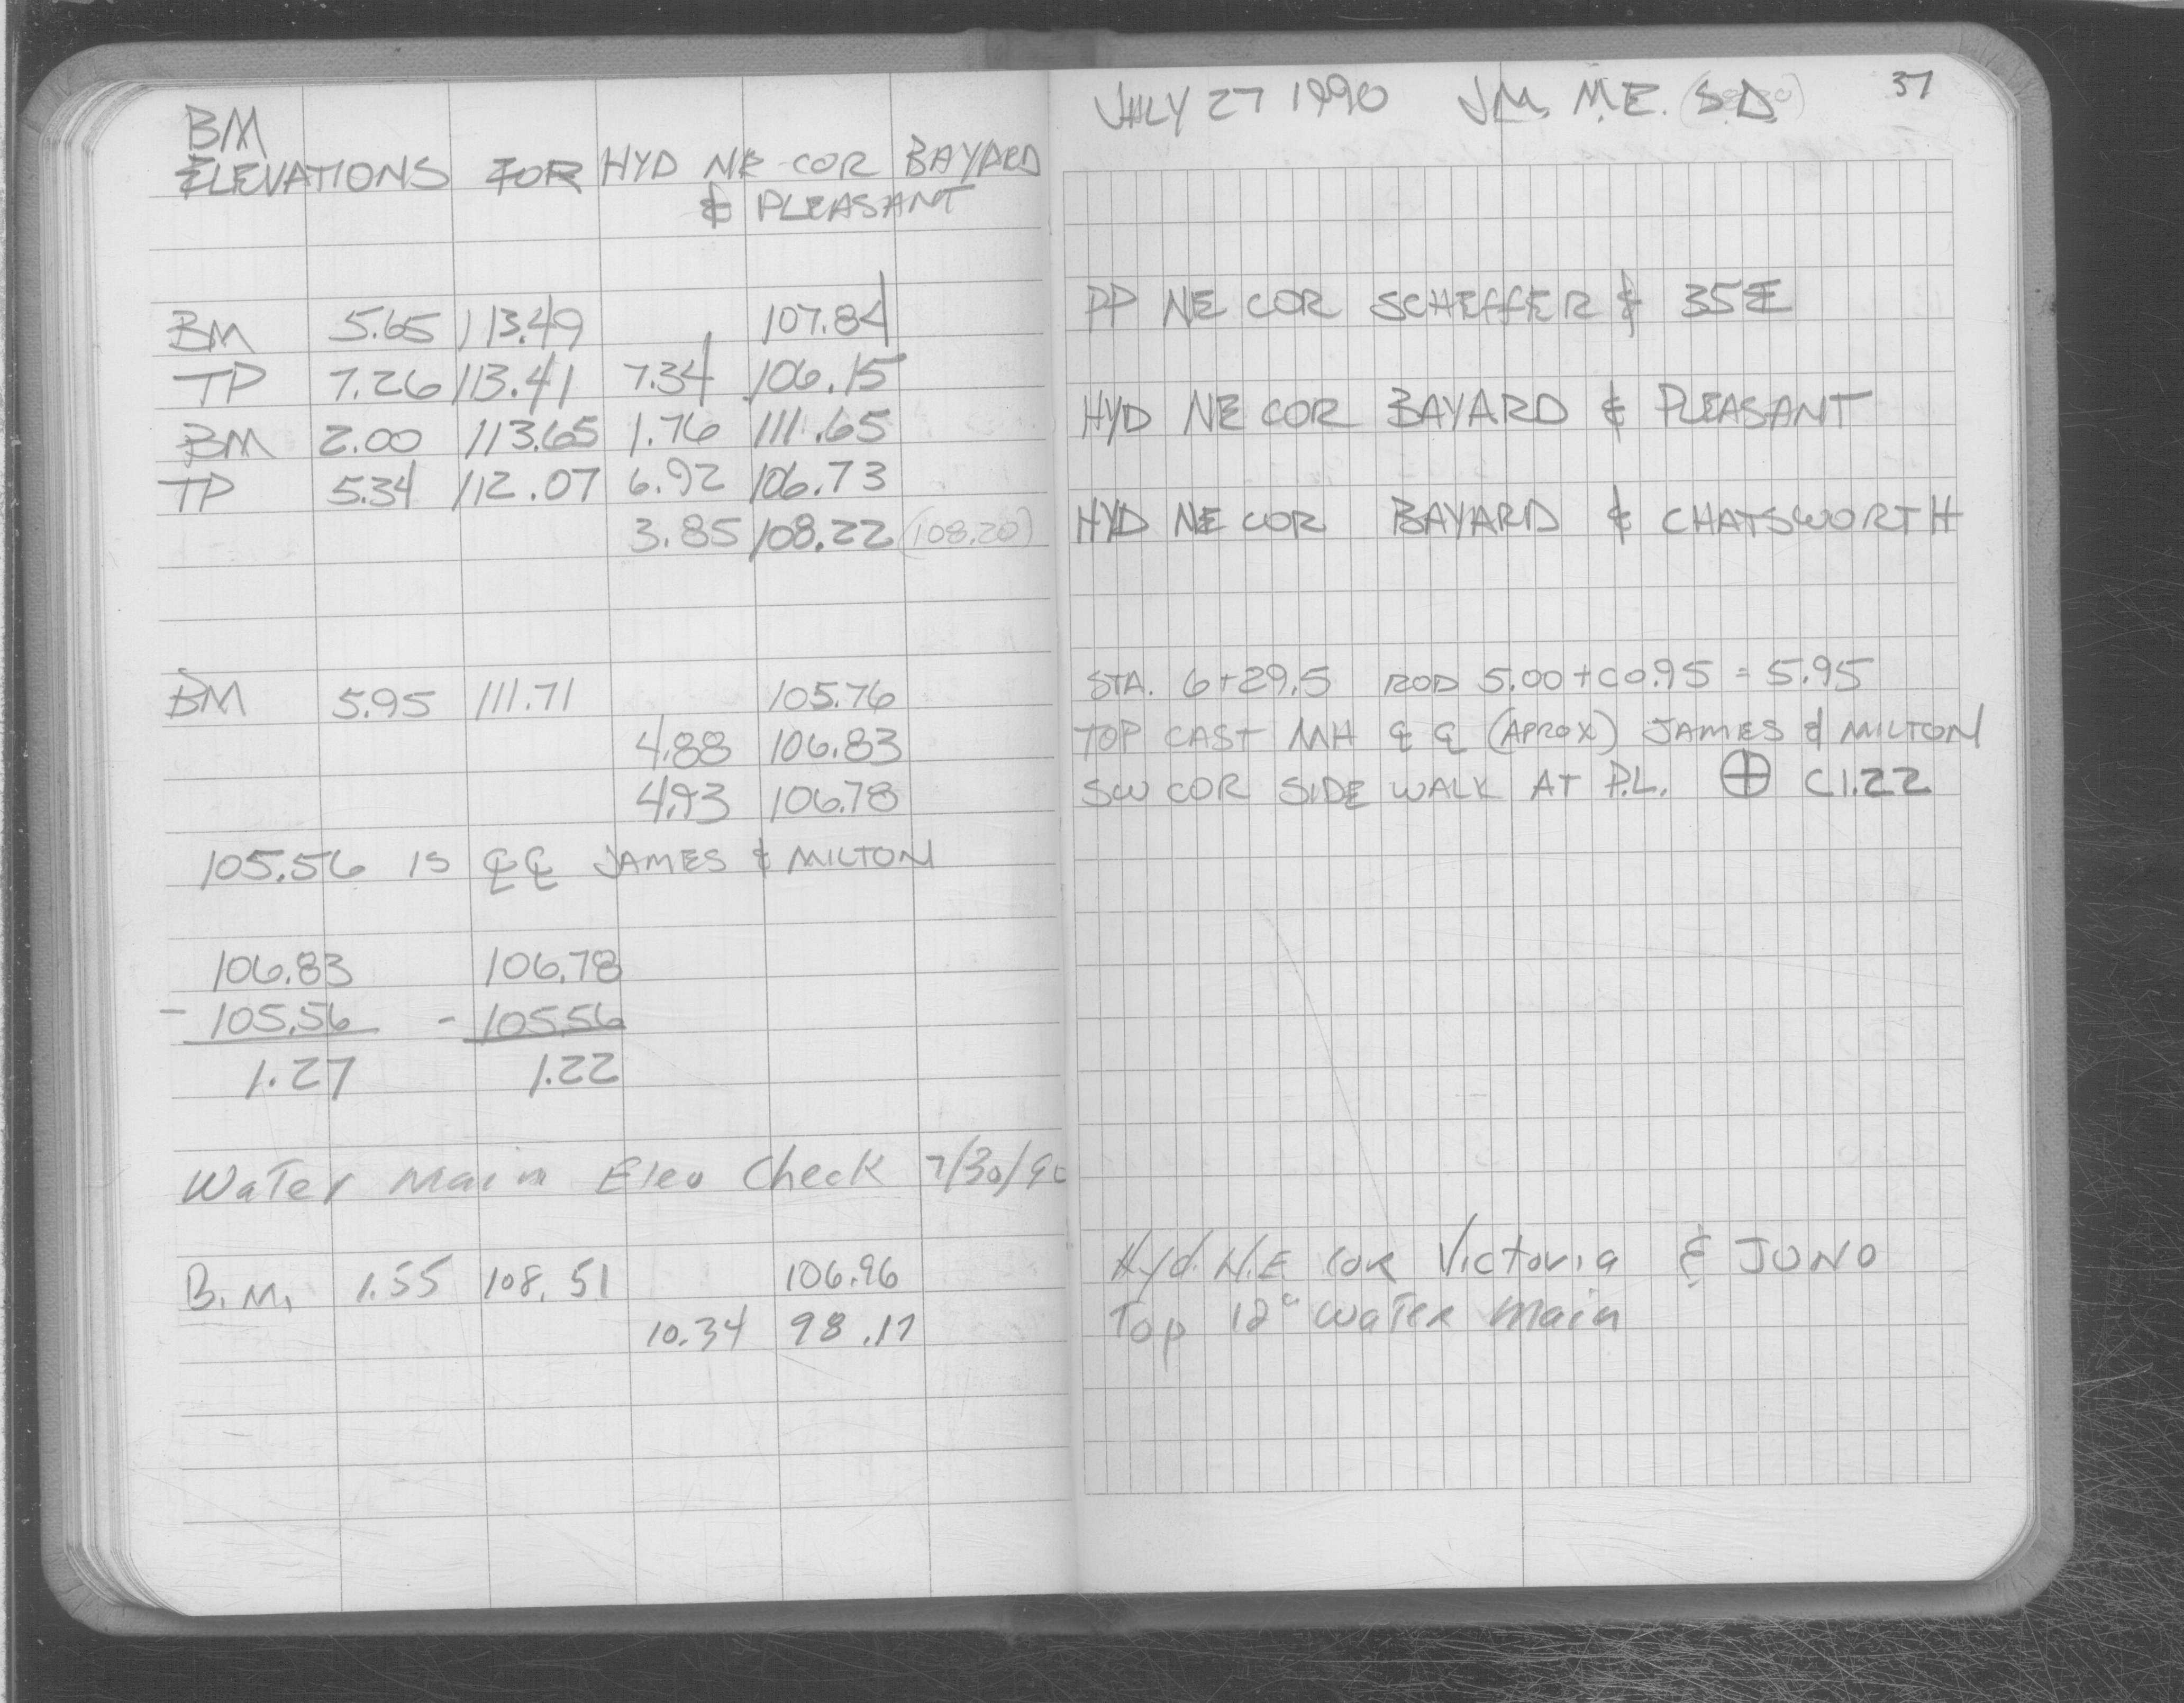 BM
ELEVATIONS FOR HYD NE COR BAYARD
& PLEASANT
BM 5.65 113.49 107.84
TP 7.26 113.41 7.34 106.15
BM 2.00 113.65 1.76 111.65
TP 5.34 112.07 6.92 106.73
3.85 108.22 (108.20)
BM 5.95 111.71 105.76
4.88 106.83
4.93 106.78
105.56 IS ℄ ℄ JAMES & MILTON
106.83 106.78
- 105.56 - 105.56
1.27 1.22
Water Main Elev Check 7/30/90
B.M. 1.55 108.51 106.96
10.34 98.17
JULY 27 1990 J.M. M.E. (S.D.) 37
PP NE COR SCHEFFER & 35E
HYD NE COR BAYARD & PLEASANT
HYD NE COR BAYARD & CHATSWORTH
STA. 6+29.5 ROD 5.00 + C0.95 = 5.95
TOP CAST MH ℄ ℄ (APROX) JAMES & MILTON
SW COR SIDE WALK AT P.L. ⊕ C1.22
Hyd. N.E. COR Victoria & JUNO
Top 12" Water Main